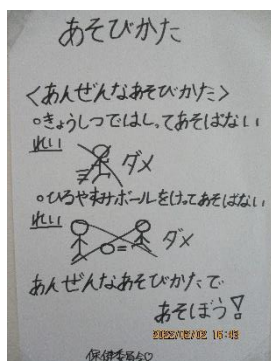 あそびかた
<あんぜんなあそびかた>
○きょうしつではしってあそばない
れい
ダメ
○ひるやすみボールをけってあそばない
れい
ダメ
あんぜんなあそびかたで
あそぼう!
2022/02/02 16:43
保健委員会♡